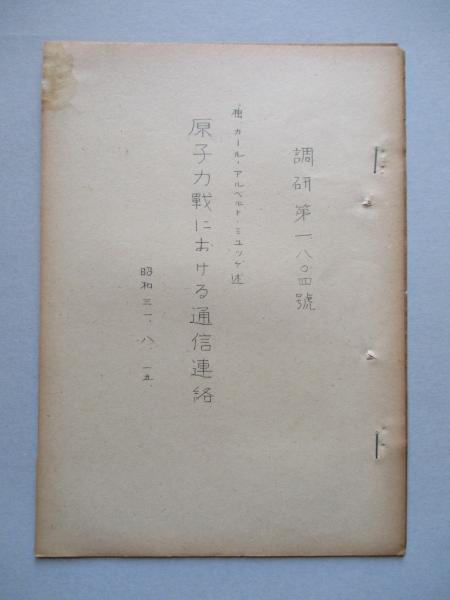 調研第一八〇四號
独、カール・アルベルト・ミュッゲ述
原子力戰における通信連絡
昭和三一、八、一五、